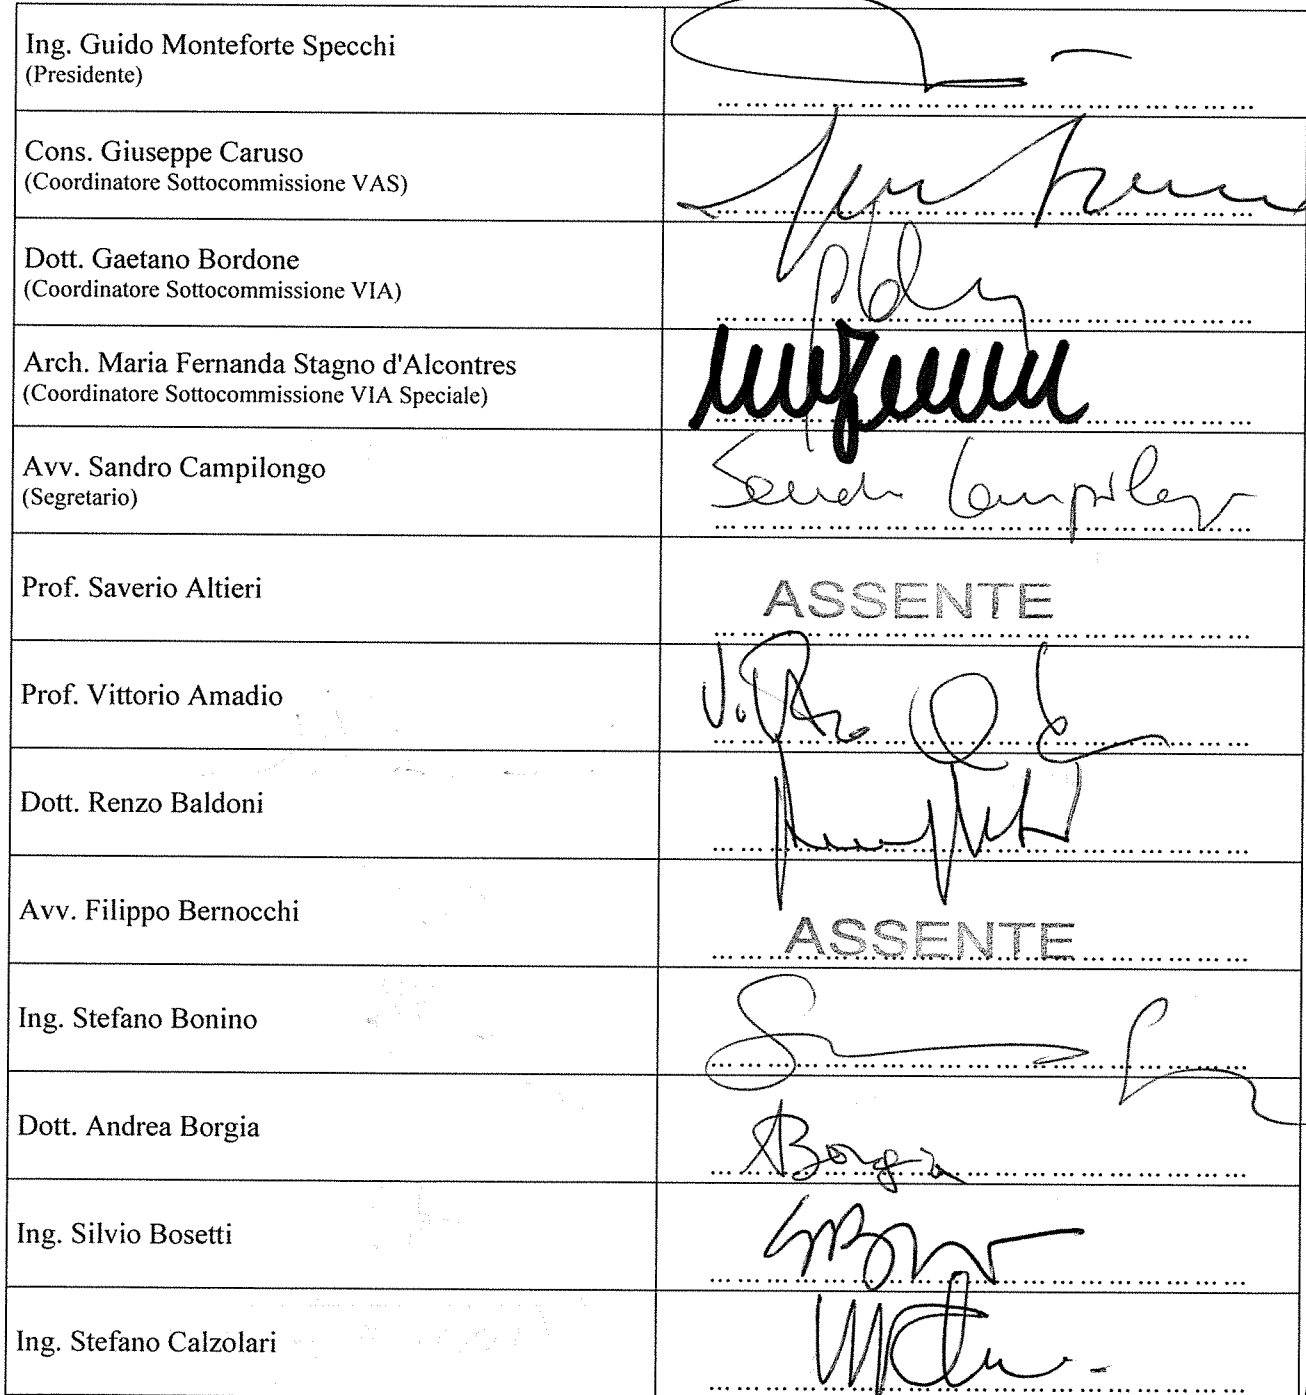 Ing. Guido Monteforte Specchi
(Presidente)
Cons. Giuseppe Caruso
(Coordinatore Sottocommissione VAS)
Dott. Gaetano Bordone
(Coordinatore Sottocommissione VIA)
Arch. Maria Fernanda Stagno d'Alcontres
(Coordinatore Sottocommissione VIA Speciale)
Avv. Sandro Campilongo
(Segretario)
Sandro Campilongo
Prof. Saverio Altieri
ASSENTE
Prof. Vittorio Amadio
Dott. Renzo Baldoni
Avv. Filippo Bernocchi
ASSENTE
Ing. Stefano Bonino
Dott. Andrea Borgia
ABorgia
Ing. Silvio Bosetti
Ing. Stefano Calzolari